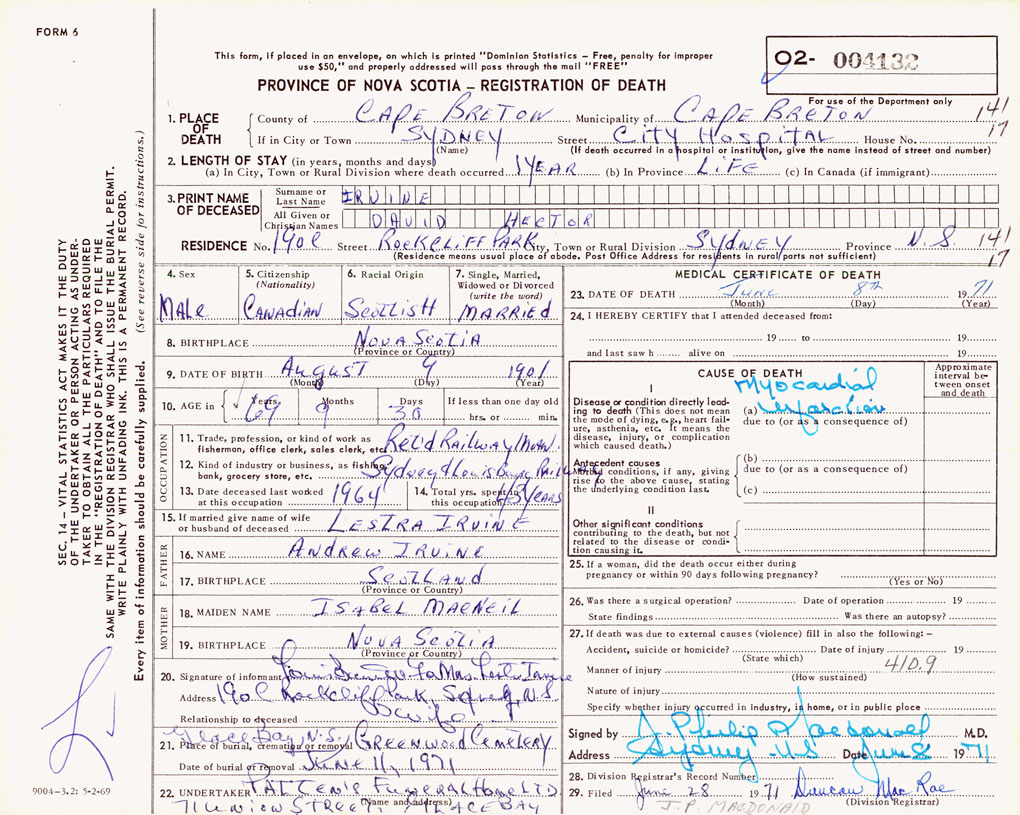 FORM 6
This form, if placed in an envelope, on which is printed "Dominion Statistics – Free, penalty for improper
use $50," and properly addressed will pass through the mail "FREE"
PROVINCE OF NOVA SCOTIA – REGISTRATION OF DEATH
O2- 004132
For use of the Department only
1. PLACE OF DEATH
County of CAPE BRETON Municipality of CAPE BRETON 141
If in City or Town SYDNEY Street CITY HOSPITAL House No. 17
(Name) (If death occurred in a hospital or institution, give the name instead of street and number)
2. LENGTH OF STAY (in years, months and days)
(a) In City, Town or Rural Division where death occurred 1 YEAR (b) In Province LIFE (c) In Canada (if immigrant)
3. PRINT NAME OF DECEASED
Surname or Last Name IRVINE
All Given or Christian Names DAVID HECTOR
RESIDENCE No. 190E Street ROCKCLIFF PARK City, Town or Rural Division SYDNEY Province N.S. 141
(Residence means usual place of abode. Post Office Address for residents in rural parts not sufficient) 17
4. Sex MALE
5. Citizenship (Nationality) CANADIAN
6. Racial Origin SCOTTISH
7. Single, Married, Widowed or Divorced (write the word) MARRIED
8. BIRTHPLACE NOVA SCOTIA
(Province or Country)
9. DATE OF BIRTH AUGUST 9 1901
(Month) (Day) (Year)
10. AGE in Years 69 Months 9 Days 30 If less than one day old
hrs. or min.
OCCUPATION
11. Trade, profession, or kind of work as Ret'd Railway Man.
fisherman, office clerk, sales clerk, etc.
12. Kind of industry or business, as fishing, Sydney & Louisburg Railway
bank, grocery store, etc.
13. Date deceased last worked at this occupation 1964
14. Total yrs. spent in this occupation 45 YEARS
15. If married give name of wife or husband of deceased LESTRA IRVINE
FATHER
16. NAME ANDREW IRVINE
17. BIRTHPLACE SCOTLAND
(Province or Country)
MOTHER
18. MAIDEN NAME ISABEL MACNEIL
19. BIRTHPLACE NOVA SCOTIA
(Province or Country)
20. Signature of informant Mrs. Irvine
Address 190E Rockcliff Park, Sydney, N.S.
Relationship to deceased Wife
Glace Bay, N.S.
21. Place of burial, cremation or removal GREENWOOD CEMETERY
Date of burial or removal JUNE 11, 1971
22. UNDERTAKER PATTEN'S FUNERAL HOME LTD
(Name and address) 71 UNION STREET, GLACE BAY
MEDICAL CERTIFICATE OF DEATH
23. DATE OF DEATH June 8th 1971
(Month) (Day) (Year)
24. I HEREBY CERTIFY that I attended deceased from:
19 to 19
and last saw h alive on 19
CAUSE OF DEATH
Approximate interval between onset and death
I
Disease or condition directly leading to death (This does not mean the mode of dying, e.g., heart failure, asthenia, etc. It means the disease, injury, or complication which caused death.)
(a) Myocardial infarction
due to (or as a consequence of)
Antecedent causes
Morbid conditions, if any, giving rise to the above cause, stating the underlying condition last.
(b)
due to (or as a consequence of)
(c)
II
Other significant conditions
contributing to the death, but not related to the disease or condition causing it.
25. If a woman, did the death occur either during
pregnancy or within 90 days following pregnancy?
(Yes or No)
26. Was there a surgical operation? Date of operation 19
State findings Was there an autopsy?
27. If death was due to external causes (violence) fill in also the following: –
Accident, suicide or homicide? Date of injury 19
(State which)
Manner of injury 410.9
(How sustained)
Nature of injury
Specify whether injury occurred in industry, in home, or in public place
Signed by J. Philip Macdonald M.D.
Address Sydney N.S Date Jun 8 1971
28. Division Registrar's Record Number
29. Filed June 28 1971 Duncan Mac Rae
(Division Registrar)
J.P. MACDONALD
SEC. 14 – VITAL STATISTICS ACT MAKES IT THE DUTY
OF THE UNDERTAKER OR PERSON ACTING AS UNDER-
TAKER TO OBTAIN ALL THE PARTICULARS REQUIRED
IN THE "REGISTRATION OF DEATH" AND TO FILE THE
SAME WITH THE DIVISION REGISTRAR WHO SHALL ISSUE THE BURIAL PERMIT.
WRITE PLAINLY WITH UNFADING INK. THIS IS A PERMANENT RECORD.
Every item of information should be carefully supplied. (See reverse side for instructions.)
9004-3.2: 5-2-69